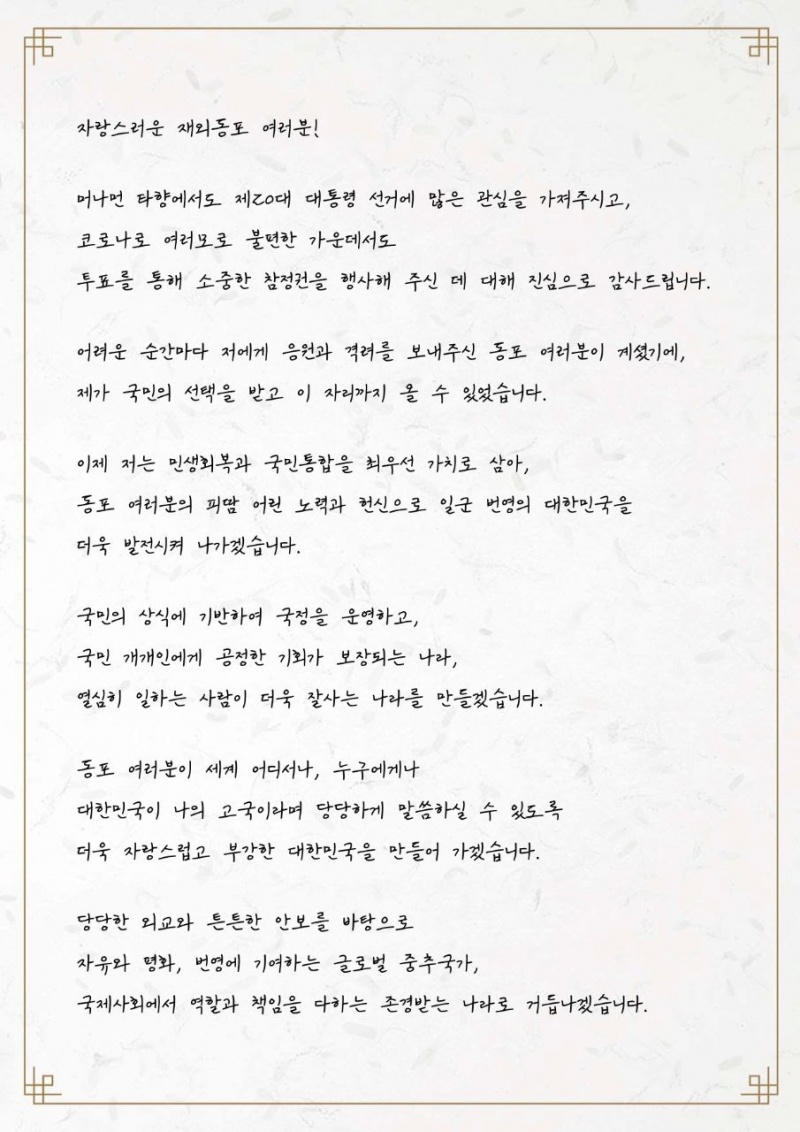 자랑스러운 재외동포 여러분!
머나먼 타향에서도 제20대 대통령 선거에 많은 관심을 가져주시고,
코로나로 여러모로 불편한 가운데서도
투표를 통해 소중한 참정권을 행사해 주신 데 대해 진심으로 감사드립니다.
어려운 순간마다 저에게 응원과 격려를 보내주신 동포 여러분이 계셨기에,
제가 국민의 선택을 받고 이 자리까지 올 수 있었습니다.
이제 저는 민생회복과 국민통합을 최우선 가치로 삼아,
동포 여러분의 피땀 어린 노력과 헌신으로 일군 번영의 대한민국을
더욱 발전시켜 나가겠습니다.
국민의 상식에 기반하여 국정을 운영하고,
국민 개개인에게 공정한 기회가 보장되는 나라,
열심히 일하는 사람이 더욱 잘사는 나라를 만들겠습니다.
동포 여러분이 세계 어디서나, 누구에게나
대한민국이 나의 고국이라며 당당하게 말씀하실 수 있도록
더욱 자랑스럽고 부강한 대한민국을 만들어 가겠습니다.
당당한 외교와 튼튼한 안보를 바탕으로
자유와 평화, 번영에 기여하는 글로벌 중추국가,
국제사회에서 역할과 책임을 다하는 존경받는 나라로 거듭나겠습니다.